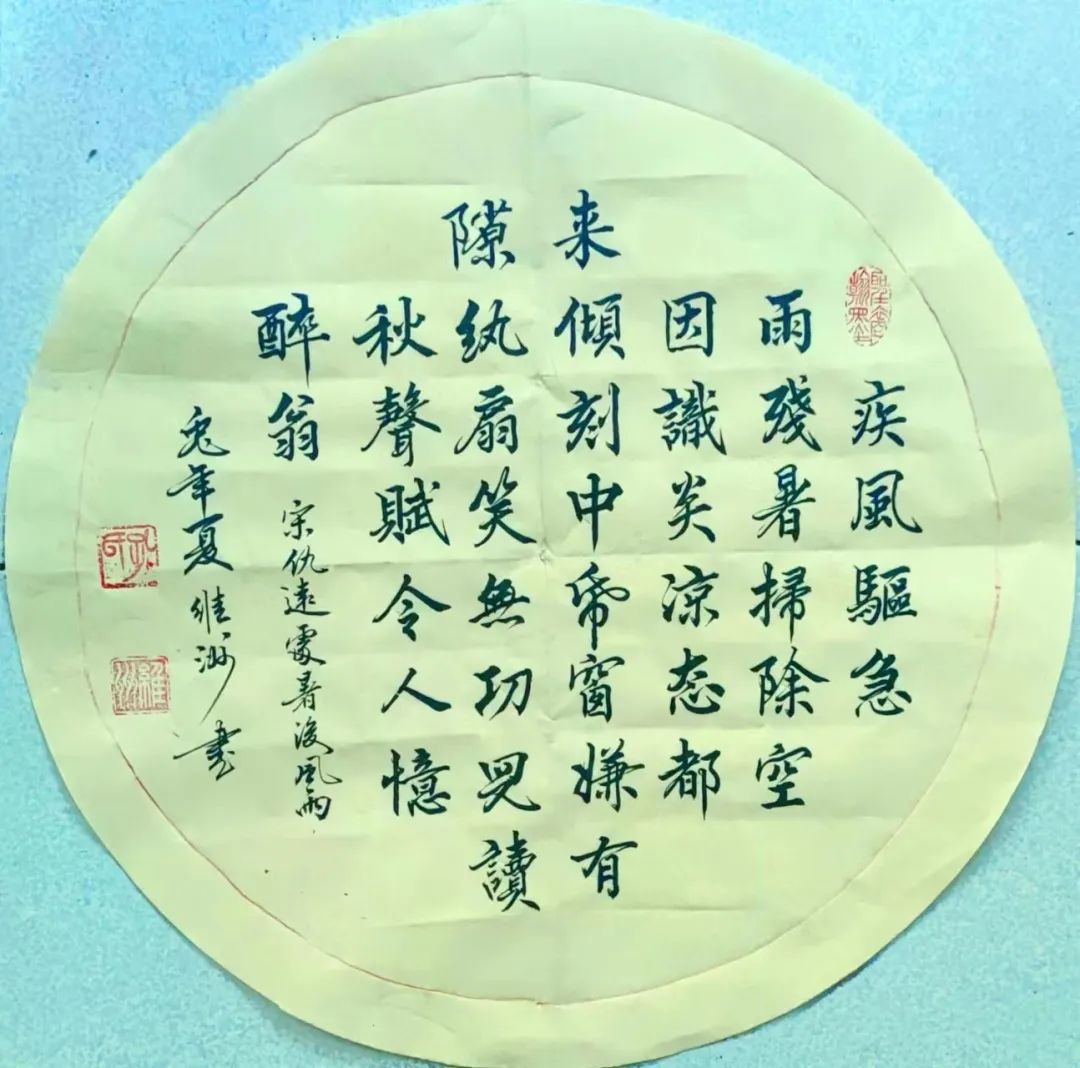 疾風驅急
雨殘暑掃除空
因識炎涼态都
来傾刻中帋窗嫌有
隙紈扇笑無功兒讀
秋聲賦令人憶
醉翁
宋仇遠處暑後風雨
兔年夏維洲書